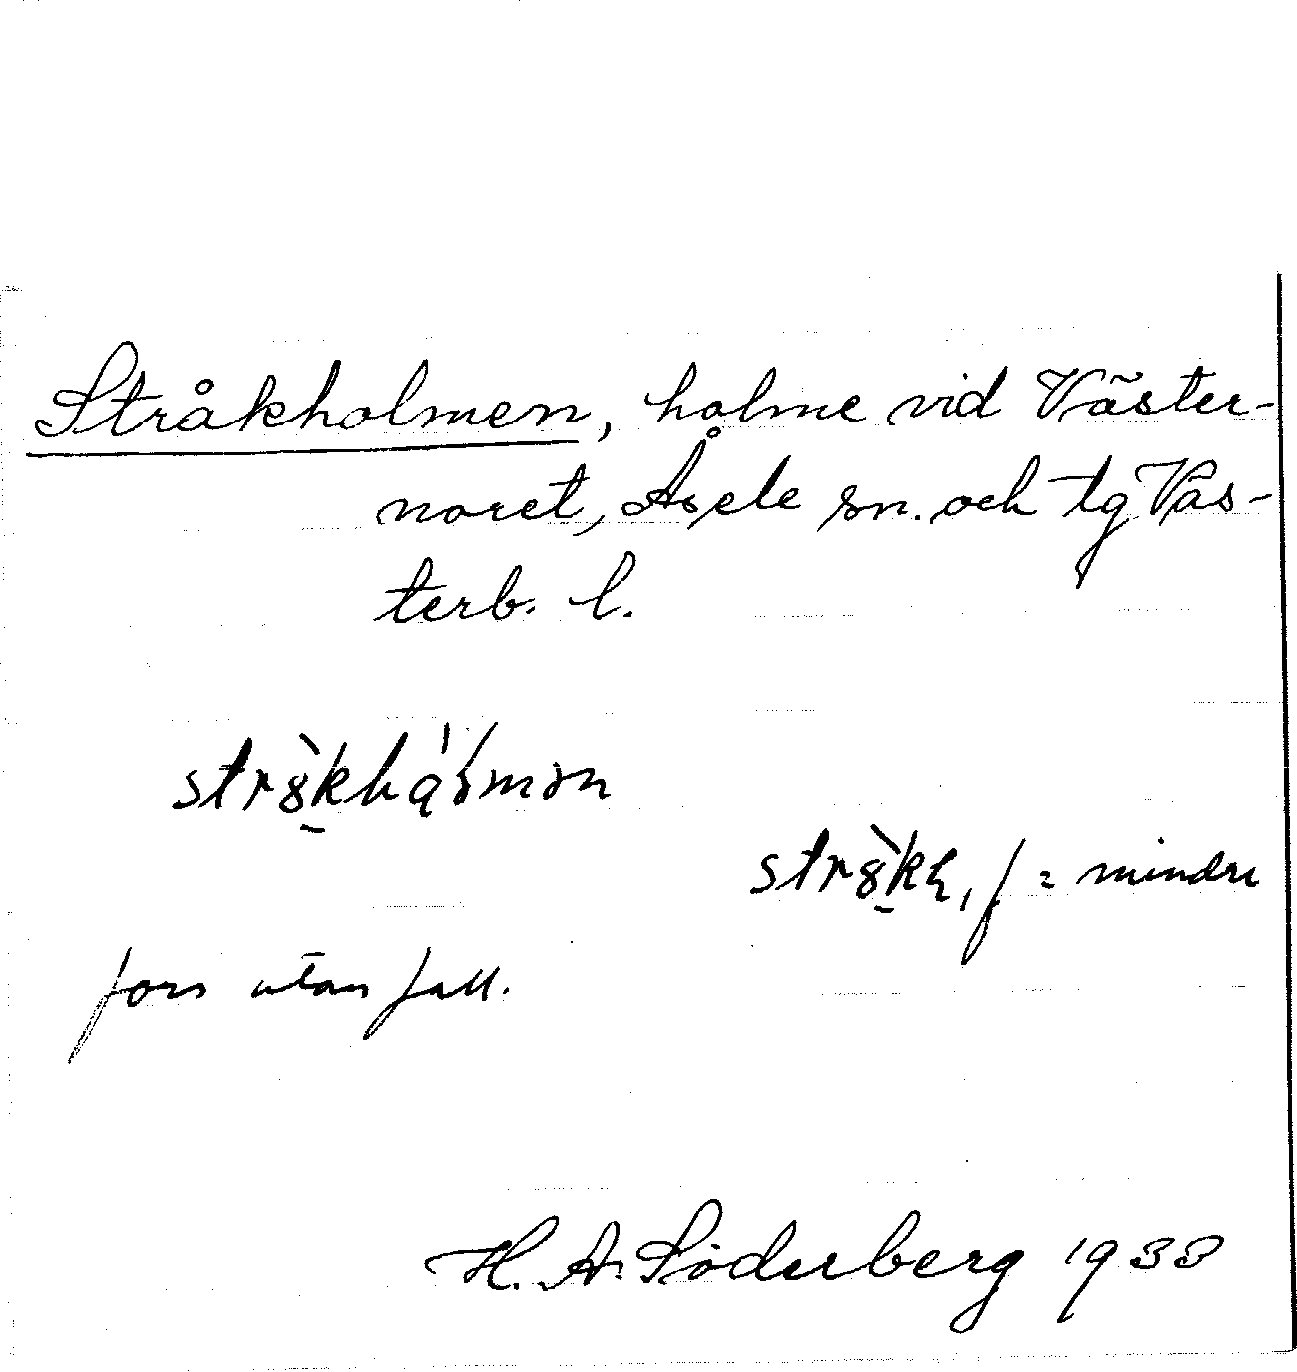 Stråkholmen, holme vid Väster-
noret, Åsele sn. och tg Väs-
terb. l.
, f = mindre
fors utan fall.
H. A. Söderberg 1933